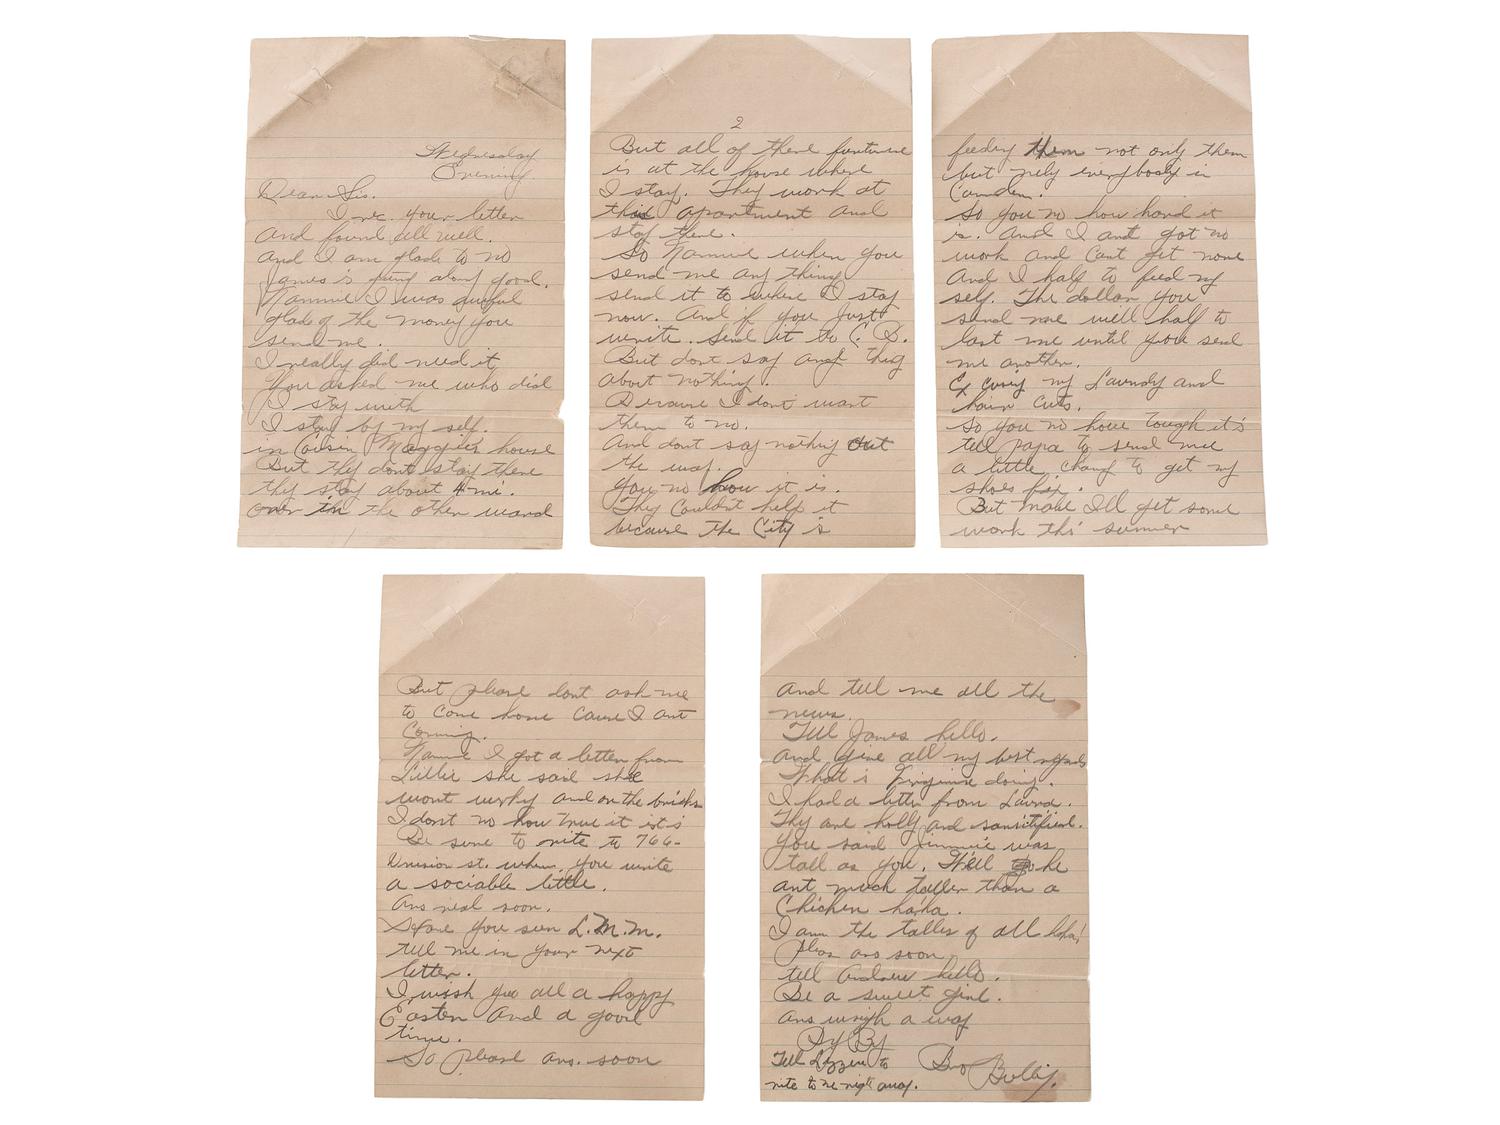 Wednesday
Evening.
Dear Sis.
I rec. your letter
And found all well.
and I am glad to no
James is getting along good.
Nannie I was awful
glad of the money you
send me.
I really did need it
You asked me who did
I stay with
I stay by my self.
in Cousin Maggie's house
But they dont stay there
thy stay about 4 mi.
over in the other ward
2
But all of there furniture
is at the house where
I stay. They work at
this apartment and
stay there.
So Nannie when you
send me any thing
send it to where I stay
now. And if you Just
write. Send it to C. D.
But dont say any thing
about nothing.
Because I dont want
them to no.
And dont say nothing out
the way.
You no how it is.
They Couldnt help it
because the City is
feeding them not only them
but nely everybody in
Camden.
So you no how hard it
is. And I ant got no
work and Cant get none
And I half to feed my
self. The dollar you
send me will half to
last me until you send
me another.
my Laundy and
hair Cuts.
So you no how tough it's
tell papa to send me
a little change to get my
shoes fix.
But mabe I'll get some
work this summer
But please dont ask me
to come home cause I ant
Coming.
Nannie I got a letter from
Lillie she said she
wont working and on the bricks
I dont no how true it is
Be sure to rite to 766-
st. when you write
a sociable little.
Ans real soon.
you seen L.M.M.
tell me in your next
letter.
I wish you all a happy
Easter And a good
time.
So please ans. soon
And tell me all the
news.
Tell James hello.
And give all my best regards
What is Virginia doing.
I had a letter from Laura.
Thy are holly and sanctified.
You said Jimmie was
tall as you. Well he
ant much taller than a
Chicken haha.
I am the talles of all haha!
Pleas ans soon
tell Andrew hello.
Be a sweet girl.
ans wrigh a way
By By
Bro Bubby.
Tell Lizzie to
rite to me right away.